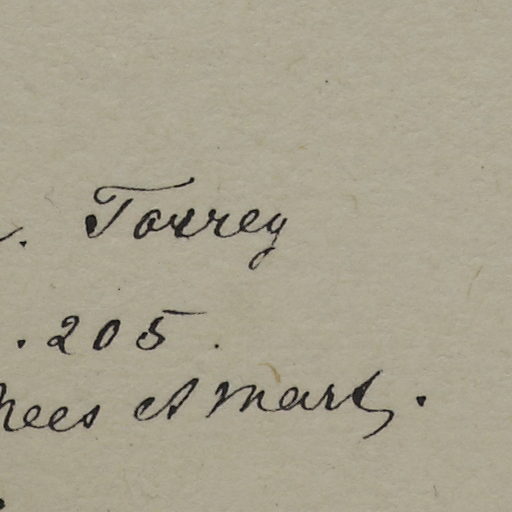 . Torrey
. 205.
Nees et Mart.